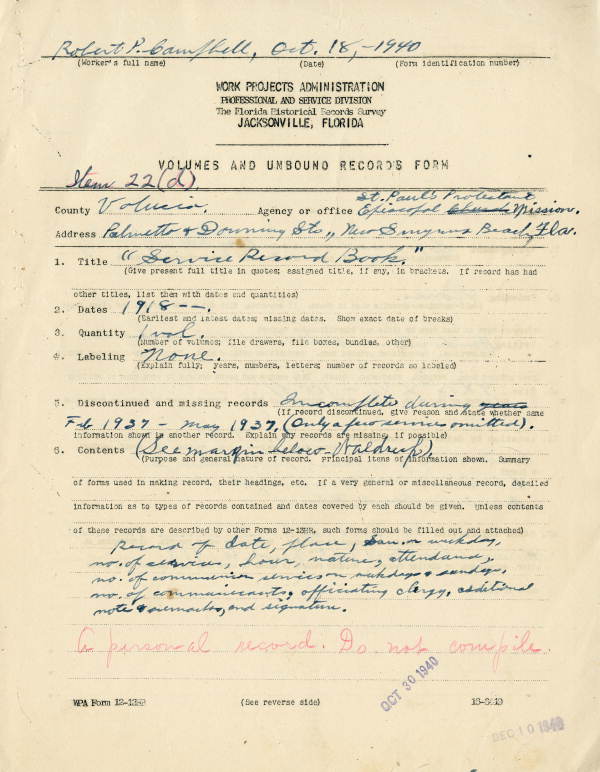 Robert P. Campbell, Oct. 18,-1940
(Worker's full name) (Date) (Form identification number)
WORK PROJECTS ADMINISTRATION
PROFESSIONAL AND SERVICE DIVISION
The Florida Historical Records Survey
JACKSONVILLE, FLORIDA
VOLUMES AND UNBOUND RECORDS FORM
Item 22(d).
St. Paul's Protestant
County Volusia. Agency or office Episcopal Church Mission.
Address Palmetto & Downing Sts., New Smyrna Beach, Fla.
1. Title "Service Record Book."
(Give present full title in quotes; assigned title, if any, in brackets. If record has had
other titles, list them with dates and quantities)
2. Dates 1918--.
(Earliest and latest dates; missing dates. Show exact date of breaks)
3. Quantity 1 vol.
(Number of volumes; file drawers, file boxes, bundles, other)
4. Labeling None.
(Explain fully; years, numbers, letters; number of records so labeled)
5. Discontinued and missing records Incomplete during years
(If record discontinued, give reason and state whether same
Feb 1937 - May 1937. (Only a few services omitted).
information shown in another record. Explain why records are missing, if possible)
6. Contents (See margin below-Waldrup).
(Purpose and general nature of record. Principal items of information shown. Summary
of forms used in making record, their headings, etc. If a very general or miscellaneous record, detailed
information as to types of records contained and dates covered by each should be given. Unless contents
of these records are described by other Forms 12-13HR, such forms should be filled out and attached)
Record of date, place, Sun. or weekday,
no. of services, hour, nature, attendance,
no. of communion services on weekdays & sundays,
no. of communicants, officiating clergy, additional
note & remarks, and signature.
A personal record. Do not compile.
OCT 30 1940
WPA Form 12-13HR (See reverse side) 16-6449
DEC 10 1940